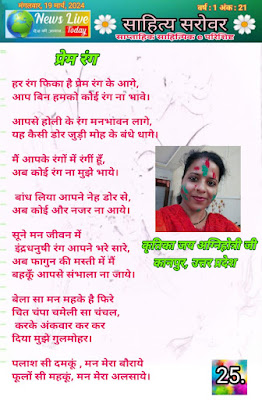 मंगलवार, 19 मार्च, 2024
News Live
Today
साहित्य सरोवर
वर्ष : 1 अंक : 21
साप्ताहिक साहित्यिक e परिशिष्ट
प्रेम रंग
हर रंग फिका है प्रेम रंग के आगे,
आप बिन हमको कोई रंग ना भावे।
आपसे होली के रंग मनभांवन लागे,
यह कैसी डोर जुड़ी मोह के बंधे धागे।
मैं आपके रंगों में रंगीं हूँ,
अब कोई रंग ना मुझे भाये।
बांध लिया आपने नेह डोर से,
अब कोई और नजर ना आये।
सूने मन जीवन में
इंद्रधनुषी रंग आपने भरे सारे,
अब फागुन की मस्ती में मैं
बहकूँ आपसे संभाला ना जाये।
बेला सा मन महके है फिरे
चित चंपा चमेली सा चंचल,
करके अंकवार कर कर
दिया मुझे गुलमोहर।
पलाश सी दमकूं , मन मेरा बौराये
फूलों सी महकूं, मन मेरा अलसाये।
कृतिका जय अग्निहोत्री जी
कानपुर, उत्तर प्रदेश
25.